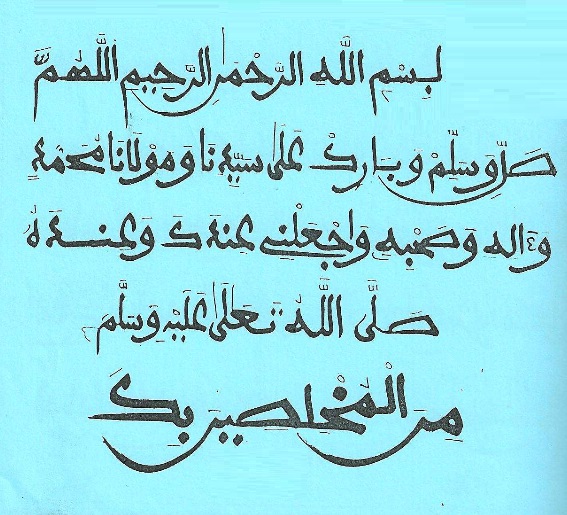 بِسْمِ اللَّهِ الرَّحْمَنِ الرَّحِيمِ اللَّهُمَّ
صَلِّ وَسَلِّمْ وَبَارِكْ عَلَى سَيِّدِنَا وَمَوْلَانَا مُحَمَّدٍ
وَءَالِهِ وَصَحْبِهِ وَاجْعَلْنِي عِنْدَكَ وَعِنْدَهُ
صَلَّى اللَّهُ تَعَالَى عَلَيْهِ وَسَلَّمَ
مِنَ الْمُخْلِصِينَ بِكَ